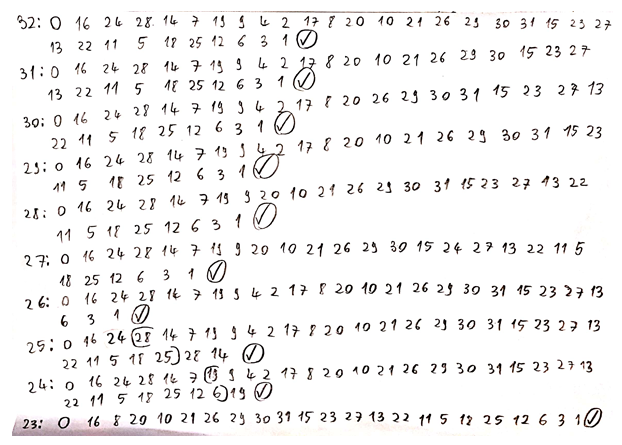 32: 0 16 24 28 14 7 19 9 4 2 17 8 20 10 21 26 29 30 31 15 23 27
13 22 11 5 18 25 12 6 3 1 ✓
31: 0 16 24 28 14 7 19 9 4 2 17 8 20 10 21 26 29 30 15 23 27
13 22 11 5 18 25 12 6 3 1 ✓
30: 0 16 24 28 14 7 19 9 4 2 17 8 20 26 29 30 31 15 23 27 13
22 11 5 18 25 12 6 3 1 ✓
29: 0 16 24 28 14 7 19 9 4 2 17 8 20 10 21 26 29 30 31 15 23
11 5 18 25 12 6 3 1 ✓
28: 0 16 24 28 14 7 19 9 20 10 21 26 29 30 31 15 23 27 13 22
11 5 18 25 12 6 3 1 ✓
27: 0 16 24 28 14 7 19 9 20 10 21 26 29 30 15 24 27 13 22 11 5
18 25 12 6 3 1 ✓
26: 0 16 24 28 14 7 19 9 4 2 17 8 20 10 21 26 29 30 31 15 23 27 13
6 3 1 ✓
25: 0 16 24 28 14 7 19 9 4 2 17 8 20 10 21 26 29 30 31 15 23 27 13
22 11 5 18 25 28 14 ✓
24: 0 16 24 28 14 7 19 9 4 2 17 8 20 10 21 26 29 30 31 15 23 27 13
22 11 5 18 25 12 6 19 ✓
23: 0 16 8 20 10 21 26 29 30 31 15 23 27 13 22 11 5 18 25 12 6 3 1 ✓